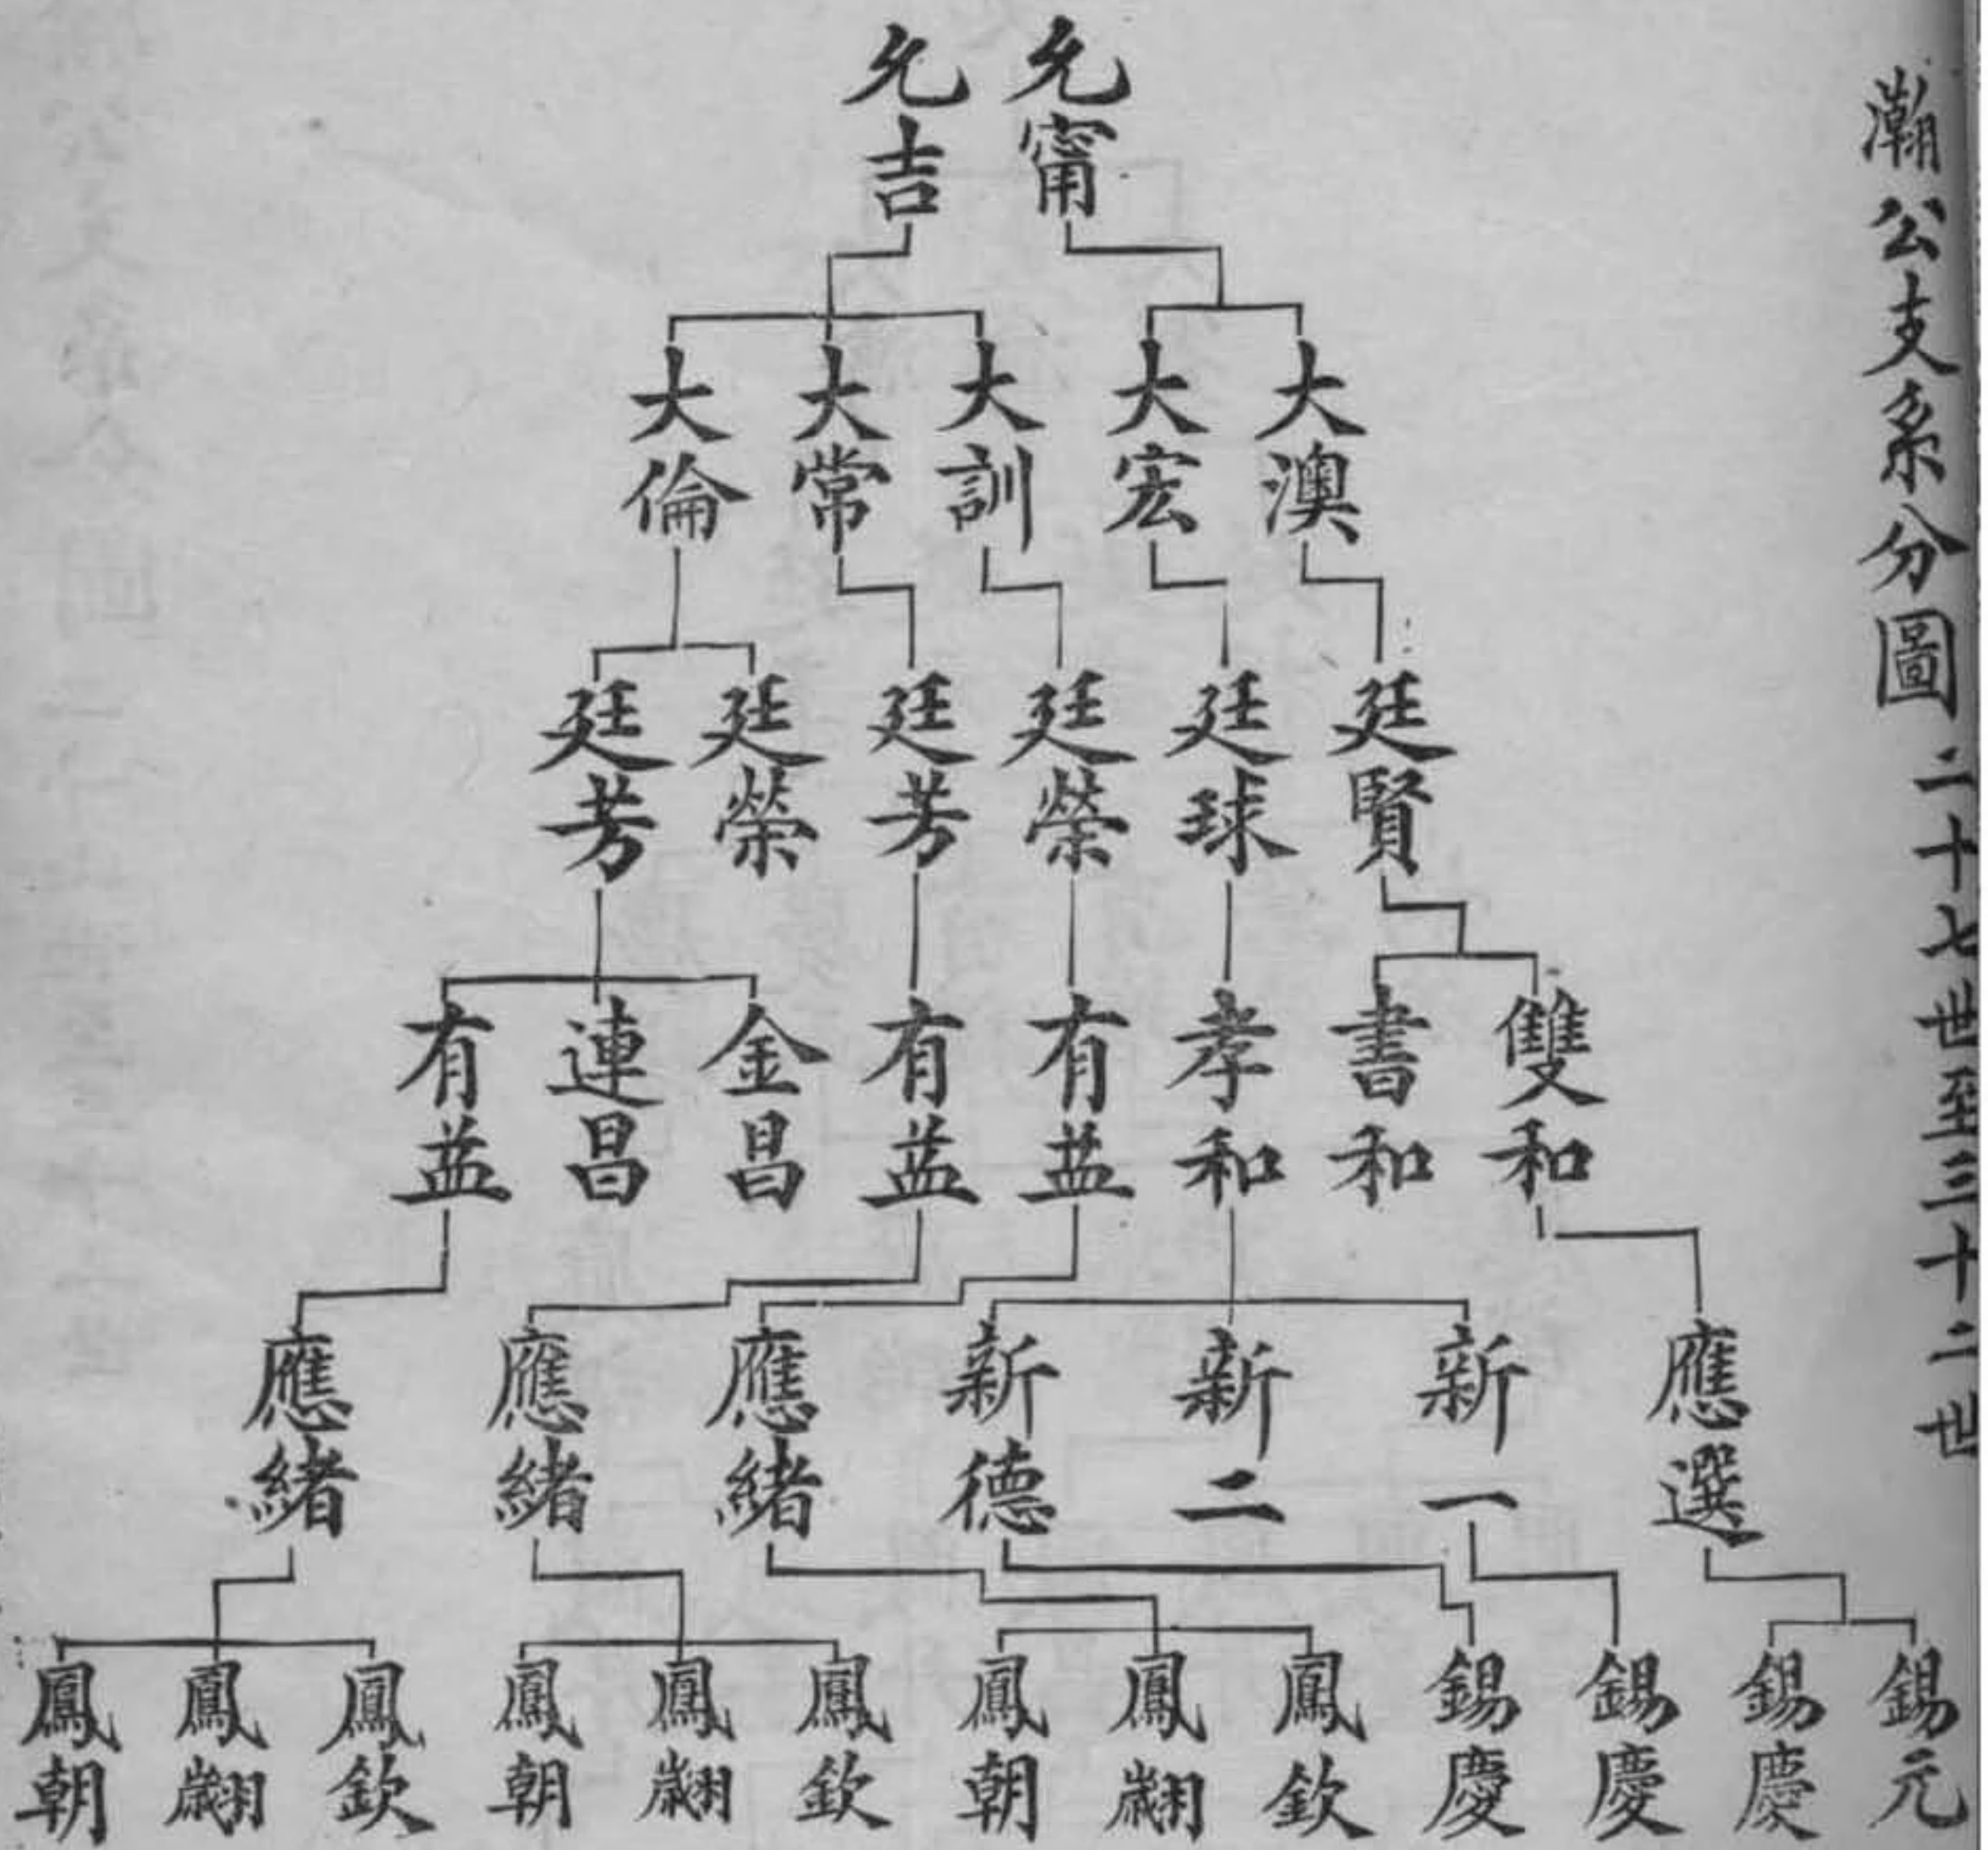 瀚公支系分圖 二十七世至三十二世
允甯 允吉
大澳 大宏 大訓 大常 大倫
廷賢 廷球 廷榮 廷芳 廷榮 廷芳
雙和 書和 孝和 有益 有益 金昌 連昌 有益
應選 新一 新二 新德 應緒 應緒 應緒
錫元 錫慶 錫慶 錫慶 鳳欽 鳳翽 鳳朝 鳳欽 鳳翽 鳳朝 鳳欽 鳳翽 鳳朝